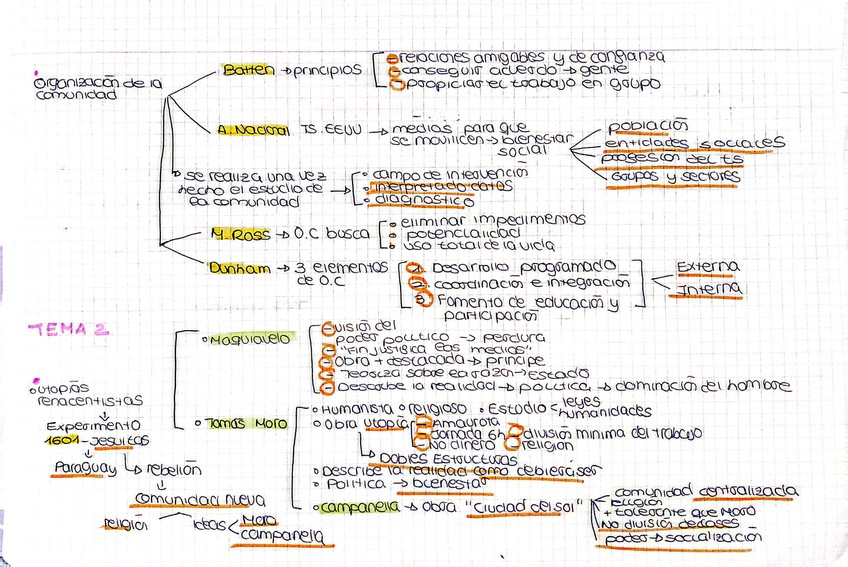 organización de la
comunidad
Batten → principios
relaciones amigables y de confianza
conseguir acuerdo → gente
propiciar el trabajo en grupo
A. Nacional TS. EEUU → medias para que
se movilicen → bienestar
social
población
entidades sociales
profesión del TS
Grupos y sectores
se realiza una vez
hecho el estudio de
la comunidad
campo de intervención
interpretado datos
diagnostico
M. Ross → O.C busca
eliminar impedimentos
potencialidad
uso total de la vida
Dunham → 3 elementos
de O.C
1. Desarrollo programado
2. coordinación e integración
3. Fomento de educación y
participación
Externa
Interna
TEMA 2
Maquiavelo
- visión del
poder político → perdura
- "Fin justifica los medios"
- Obra + destacada → príncipe
- Teoriza sobre la razón → Estado
- Describe la realidad → política → dominación del hombre
utopías
renacentistas
Experimento
1601 - Jesuitas
Paraguay
rebelión
comunidad nueva
religión
ideas < Moro
campanella
Tomás Moro
Humanista
religioso
Estudio < leyes
humanidades
Obra utopía
- Amaurota
- Jornada 6h
- No dinero
división mínima del trabajo
religión
Dobles Estructuras
Describe la realidad como debiera ser
Politica → bienestar
campanella → obra "Ciudad del sol"
comunidad centralizada
religión
+ tolerante que Moro
No división de clases
poder → socialización